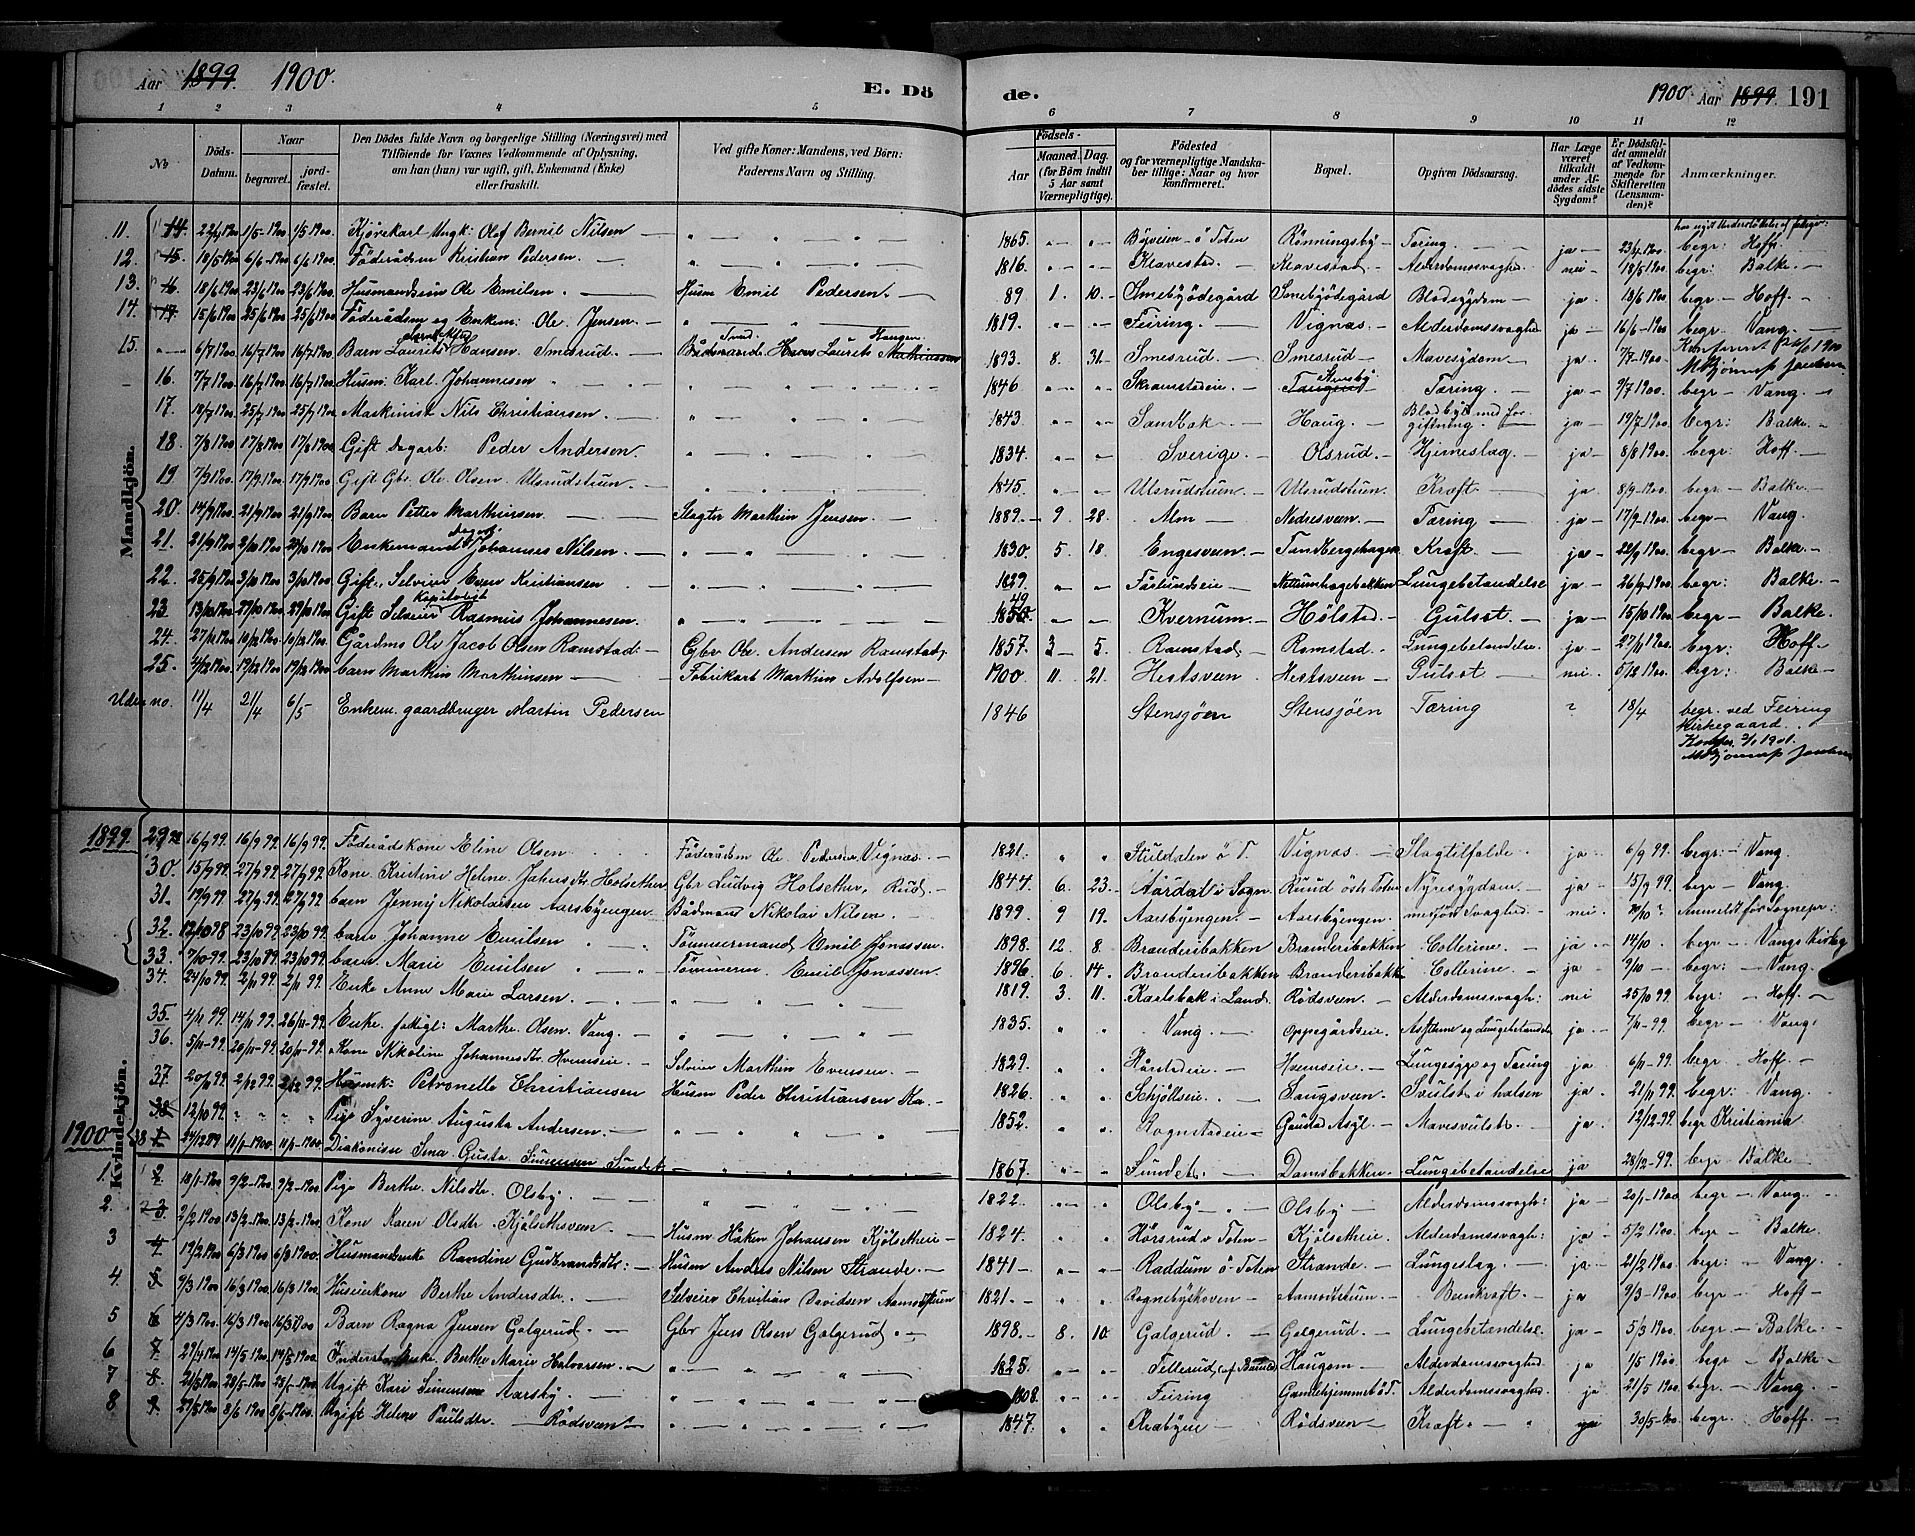 Aar 1899. 1900. E. Dö de. 1900. Aar 1899. 191
1 2 3 4 5 6 7 8 9 10 11 12
No
Döds-Datum.
Naar
begravet.
jord-fæstet.
Den Dödes fulde Navn og borgerlige Stilling (Næringsvei) med
Tilföiende for Voxnes Vedkommende af Oplysning,
om han (hun) var ugift, gift, Enkemand (Enke)
eller fraskilt.
Ved gifte Koner: Mandens, ved Börn:
Faderens Navn og Stilling.
Födsels-
Aar
Maaned. Dag.
(for Börn indtil
5 Aar samt
Værnepligtige).
Födested
og for værnepligtige Mandska-
ber tillige: Naar og hvor
konfirmeret.
Bopæl.
Opgiven Dödsaarsag.
Har Læge
været
tilkaldt
under Af-
dödes sidste
Sygdom?
Er Dödsfal-
det anmeldt
af Vedkom-
mende for
Skifteretten
(Lensman-
den)?
Anmærkninger.
Mandkjön.
11. 14. 22/4 1900 1/5-1900 1/5 1900. Kjörekarl Ungk: Olaf Bernil Nilsen 1865. Byveien ö Toten Rönningsby Tæring. ja 23/4-1900. begr. Hoff.
12. 15. 18/5 1900 6/6-1900 6/6 1900. Föderådsm Kristian Pedersen. 1816. Klavestad. Klavestad. Alderdomssvaghed nei 18/5 1900. begr: Balke.
13. 16. 18/6 1900 23/6 1900 23/6 1900. Husmandssön Ole Emilsen. Husm Emil Pedersen. 89 1. 10. Smebyödegård Smebyödegård Blodsygdom ja 18/6 1900. begr Hoff.
14. 17. 15/6 1900 25/6 1900 25/6 1900. Föderådsm og Enkem: Ole Jensen. 1819. Feiring. Vignas. Alderdomssvaghed ja 16/6-1900. begr. Vang.
15. 6/7 1900 16/7 1900 16/7 1900. Barn Laurits Hansen Smesrud. Hans Laurits Mathiassen 1893. 8. 31. Smesrud Smesrud Mavesygdom ja 7/7-1900.
16. 7/7 1900 16/7 1900 16/7 1900. Husm: Karl Johannesen 1846 Skramstadeie. Tæring. ja 9/7 1900. begr Vang.
17. 18/7 1900 25/7 1900 25/7 1900. Maskinist Nils Christiansen. 1843 Sandbak. Haug. ja 19/7 1900. begr: Balke.
18. 7/8 1900 17/8 1900 17/8 1900. Gift dagarb: Peder Andersen. 1834 Sverige. Olsrud. Hjerneslag. ja 8/8 1900. begr: Hoff.
19 7/9 1900. 17/9 1900 17/9 1900. Gift Gbr. Ole Olsen. Ulsrudstuen. 1845. Ulsrudstuen. Ulsrudstuen. Kræft ja 8/9-1900. begr. Balke.
20. 14/9 1900. 21/9 1900 21/9 1900 Barn Petter Marthinsen. Slagter Marthin Jensen. 1889. 9 28. Alm Nedresveen. Tæring. ja 17/9-1900. begr Vang.
21. 21/9 1900 2/10 1900 Enkemand Johannes Nilsen. 1830. 5. 18. Engesveen Tandbergshagen Kræft ja 22/9 1900. begr Balke.
22. 25/9 1900 3/10 1900 3/10 1900. Gift. Selveier Even Kristiansen 1829 Nettumhagebakken Lungebetændelse ja 26/9-1900. begr: Balke.
23 13/10 1900 27/10 1900 27/10 1900. Gift Selveier Rasmus Johannesen. Kapitalist 49 1850 Kvernum. Hölstad. Gulsot. ja 15/10 1900. begr. Balke.
24. 27/11 1900 10/12 1900 10/12 1900. Gårdms Ole Jacob Olsen Ramstad: Gbr Ole. Andersen Ramstad, 1857 3 5. Ramstad Ramstad. Lungebetændelse. ja 27/11 1900. begr: Hoff.
25. 4/12 1900. 19/12 1900 19/12 1900. barn Marthin Marthinsen Fabrikarb Marthin Adolfsen 1900. 11 21. Hestsveen Hestsveen Gulsot nei 5/12 1900. begr: Balke
Uden no. 11/4 21/4 6/5 Enkem. gaardbruger Martin Pedersen 1846 Stensjöen Stensjöen Tæring ? 18/4 begr. ved Feiring
Kirkegaard.
1899. Kvindekjön.
29. 16/9 99. 16/9 99. 16/9 99. Föderådskone Eline Olsen Föderådsm Ole Pedersen Vignas. 1821. Stuldalen ö T. Vignas Slagtilfælde. ja 6/9 99. begr. Vang.
30. 15/9 99. 27/9 99. 27/9 99 Kone Kristine Helene Holsether Gbr Ludvig Holsether, Rud. 1844. 6. 23. Aardal i Sogn. Ruud östre Toten Nyresygdom. ja 15/9 99. begr Vang.
31. 19/9 99. 27/9 99. 27/9 99 barn Jenny Nikolaisen Aarsbyengen Bådmand Nikolai Nilsen. 1899. 9 19. Aarsbyengen. Aarsbyengen. medfödt Svaghed nei Anmeldt for Sognepr:
32. 12/10 98 23/10 99. 23/10 99. barn Johanne Emilsen Tömmermand Emil Jonassen. 1898. 12. 8. Branderibakken Branderibakken Collerine. ja 14/10. begr Vangs Kirkeg
33. 9/10 99. 23/10 99. 23/10 99. barn Marie Emilsen Tömmerm Emil Jonassen. 1896. 6. 14. Branderibakken Branderibakk Collerine. ja 9/10 begr: Vang.
34. 24/10 99. 2/11 99. 2/11 99. Enke Anne Marie Larsen. 1819. 3. 11. Karlsbak i Land. Rödsveen Alderdomssvagh: nei 25/10 99. begr: Hoff.
35. 4/11 99. 14/11 99. 26/11-99. Enke. fattigl: Marthe Olsen Vang. 1835. Vang. Oppegårdseie. Asthma og Lungebetændelse ja 7/11-99. begr Vang.
36. 5/11-99. 20/11-99. 20/11-99. Kone Nikoline Johannesdtr. Hvemseie. Selveier Marthin Evensen. 1829. Hårstadeie. Hvemseie. Lungesyge og Tæring ja 6/11 99. begr Hoff.
37. 20/11 99. 2/12 99. 2/12 99. Petronelle Christiansen Husm Peder Christiansen 1826. Skjölleseie. Haugsveen. Svulst i halsen ja 21/11 99. begr: Vang.
38. 12/10 99. Pige Syverine Augusta Andersen. 1852. Sognstadeie Gaustad Asyl Mavesvulst ja 12/12-99. begr Kristiania
1900 38 1. 24/12 89 11/1-1900. 11/1-1900. Diakonisse Sina Gusta Simensen Sundet 1867. Sundet. Damsbakken. Lungebetændelse ja 28/12-99. begr Balke
1. 2. 18/1-1900 9/2-1900. 9/2-1900. Pige Berthe Nilsdtr. Olsby. 1822. Olsby. Olsby. Alderdomssvagh: ja 20/1-1900 begr Vang.
2. 3. 2/2 1900 13/2-1900. 13/2-1900. Kone Karen Olsdtr Kjölsethsveen. Husm Håken Johansen Kjölsetheie 1824. Hörsrud v Toten Kjölsetheie Alderdomssvagh: ja 5/2 1900. begr Balke.
3 4. 19/2 1900 6/3 1900. 6/3 1900. Husmandsenke Randine Gudbrandsdtr: Husm Anders Nilsen Strande. 1841 Raddum ö Toten Strande. Lungeslag. ja 21/2 1900. begr: Vang.
4. 5. 9/3 1900 16/3 1900 16/3 1900. Huseierkone Berthe Andersdtr. Selveier Christian Davidsen Aamodtstuen 1821. Rognebyskoven Aamodtstuen Benkræft. ja 9/3-1900. begr Hoff
5 6 4/3 1900. 16/3 1900 16/3 1900 Barn Ragna Jensen Galgerud. Gbr Jens Olsen Galgerud 1898. 8. 10. Galgerud. Galgerud. Lungebetændelse. ja 5/3 1900. begr. Balke.
6 7 29/4 1900 14/5 1900 14/5 1900 Inderstenke Berthe Marie Halvorsen. 1825 Tellerud, Haugom Alderdomssvaghed. ja 1/5 1900. begr Balke
7 8. Ugift Kari Simensen Aarsby. 1808. Feiring Gamlehjemmet ö T. Alderdomssvaghed ja 21/5 1900. begr. Vang.
8 9. 29/5 1900 8/6 1900 8/6-1900. Ugift Helene Paulsdtr. Rödsveen 1847. Kræbyeie Rödsveen Kræft. 30/5-1900. begr. Hoff.